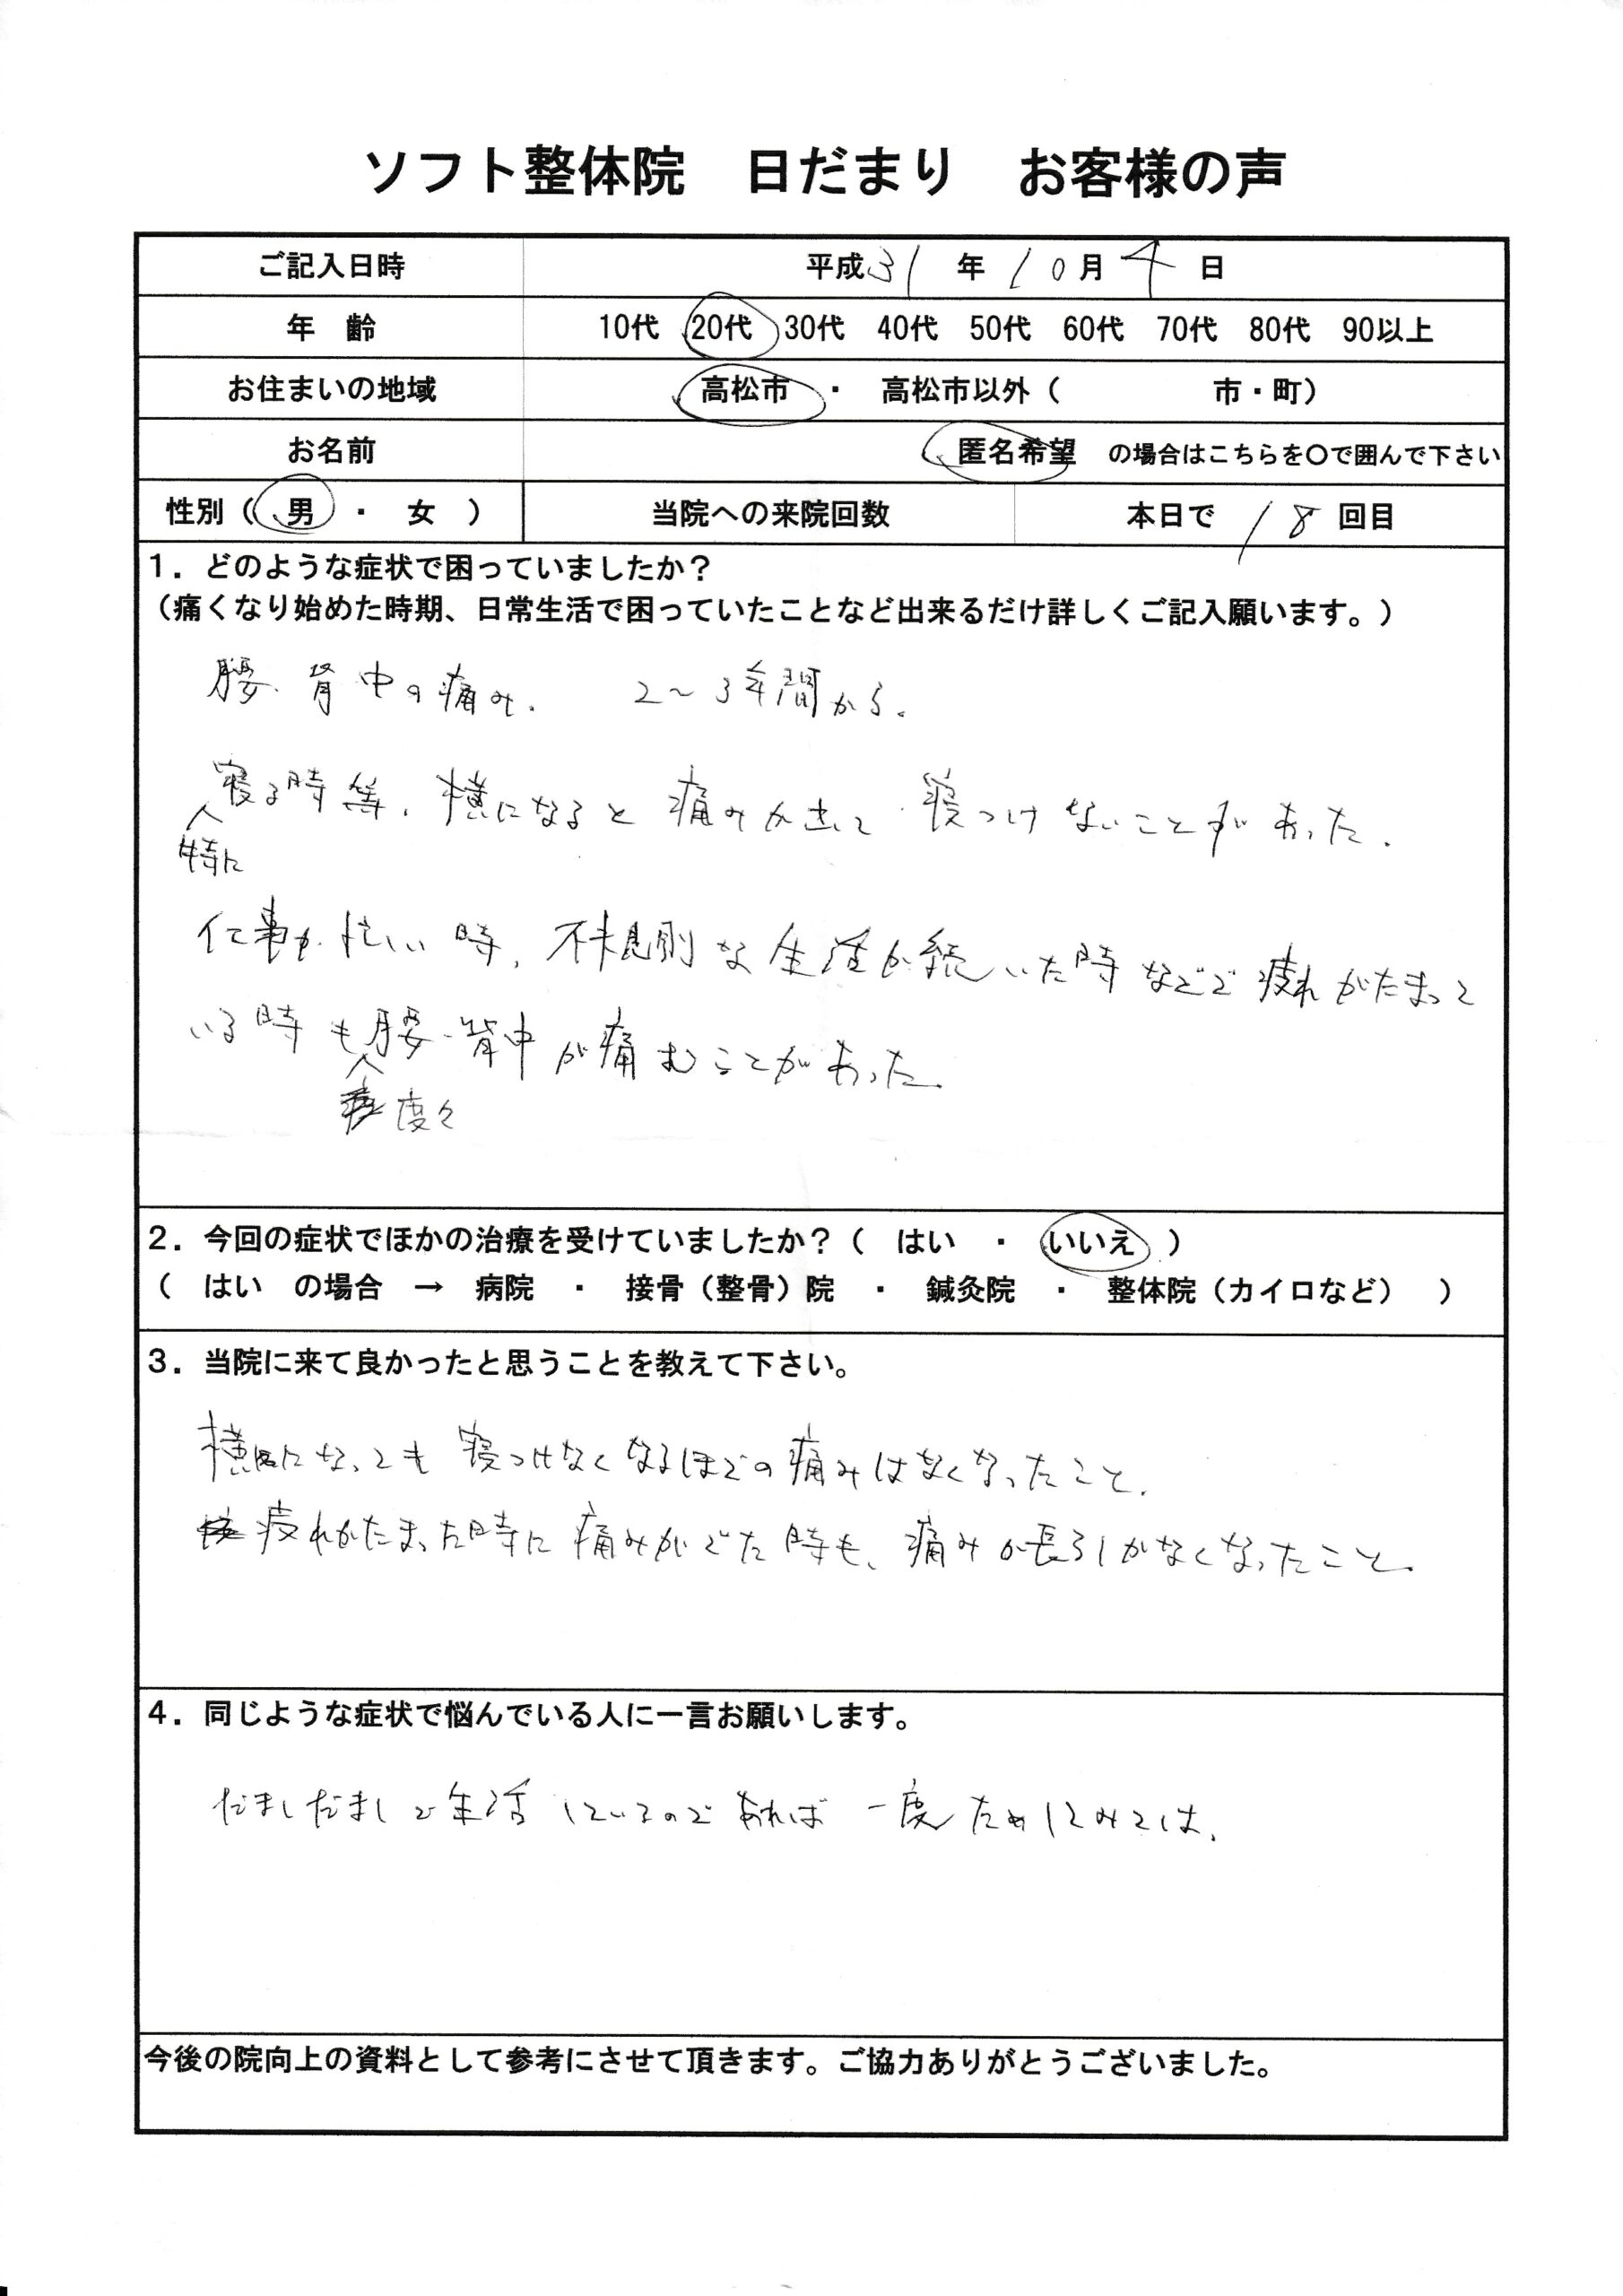 ソフト整体院　日だまり　お客様の声
ご記入日時　平成31年10月4日
年　齢　10代　20代　30代　40代　50代　60代　70代　80代　90以上
お住まいの地域　高松市　・　高松市以外（　　　　　市・町）
お名前　匿名希望　の場合はこちらを〇で囲んで下さい
性別（　男　・　女　）　当院への来院回数　本日で　18　回目
1．どのような症状で困っていましたか？
（痛くなり始めた時期、日常生活で困っていたことなど出来るだけ詳しくご記入願います。）
腰、背中の痛み.　2～3年間から。
寝る時等、横になると痛みが出て、寝つけないことがあった.
特に
仕事が忙しい時、不規則な生活が続いた時などで疲れがたまって
いる時も腰・背中が痛むことがあった.
度々
2．今回の症状でほかの治療を受けていましたか？（　はい　・　いいえ　）
（　はい　の場合　→　病院　・　接骨（整骨）院　・　鍼灸院　・　整体院（カイロなど）　）
3．当院に来て良かったと思うことを教えて下さい。
横になっても寝つけなくなるほどの痛みはなくなったこと.
疲れがたまった時に痛みがでた時も、痛みが長引かなくなったこと.
4．同じような症状で悩んでいる人に一言お願いします。
だましだましで生活しているのであれば一度ためしてみては.
今後の院向上の資料として参考にさせて頂きます。ご協力ありがとうございました。